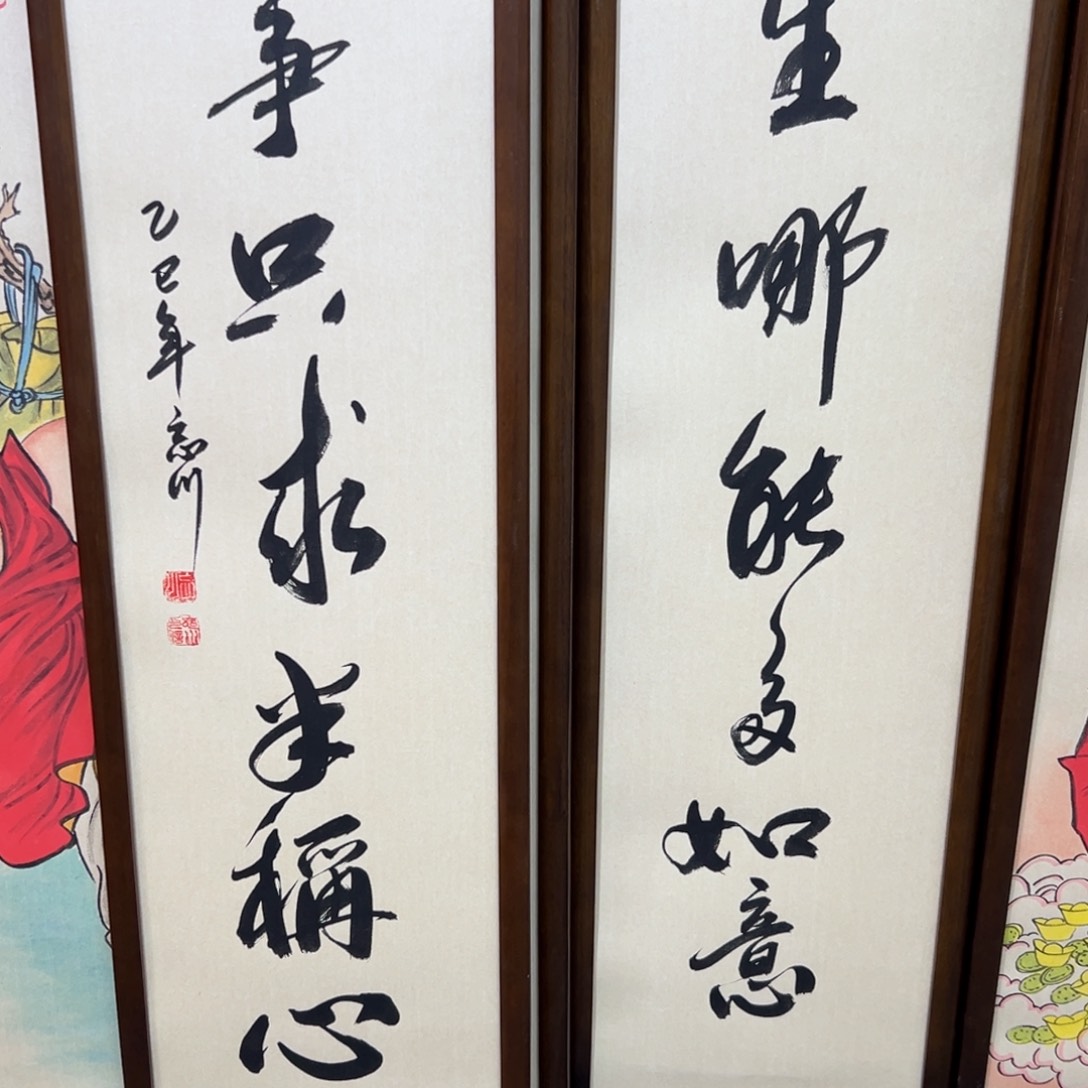 生哪能多如意
事只求半稱心
乙巳年 川